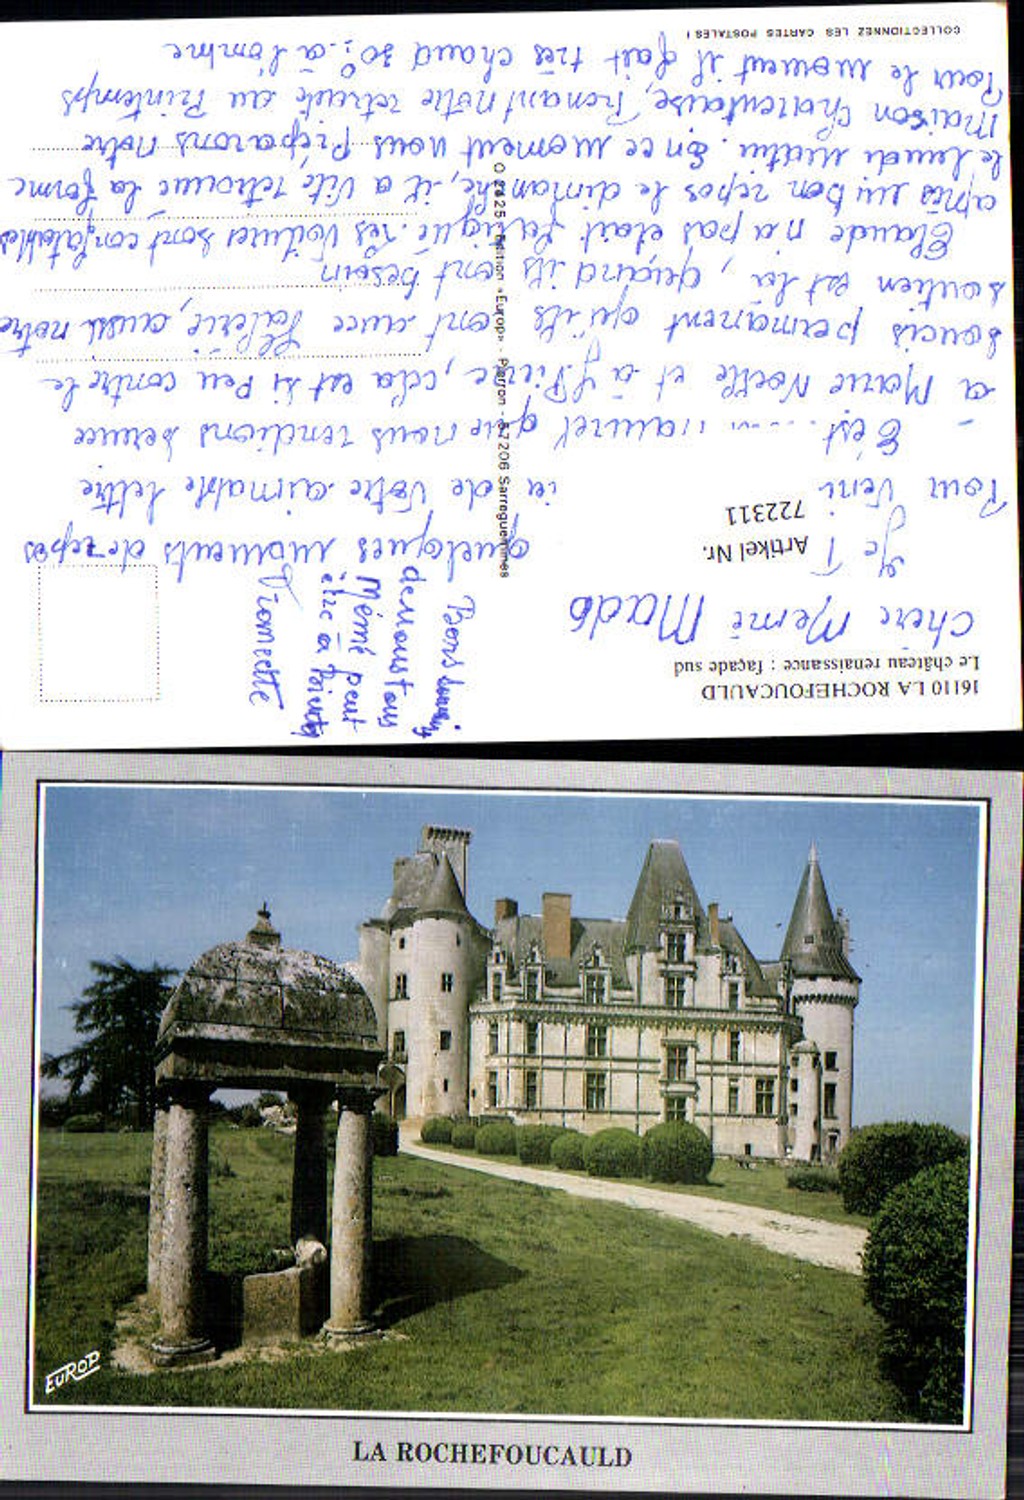 16110 LA ROCHEFOUCAULD
Le château renaissance : façade sud
Chère Memé Mado
Artikel Nr.
722311
Je
quelques moments de repos
Pour venir
de votre aimable lettre
C'est naturel que nous rendions service
à Marie Noëlle et à J Pierre, cela est si peu contre le
soucis permanent qu'ils ont avec Valérie, aussi notre
soutien est là, quand ils ont besoin
Claude n'a pas était fatigué. les voitures sont confortables
après un bon repos le dimanche, il a vite retrouvé la forme
le lundi matin. En ce moment nous préparons notre
maison charentaise, prenant notre retraite au Printemps
Pour le moment il fait très chaud 30° à l'ombre
Bons baisers
de nous tous
Mémé peut
être à
© Edition «Europ» - Pierron - 57206 Sarreguemines
COLLECTIONNEZ LES CARTES POSTALES !
EUROP
LA ROCHEFOUCAULD